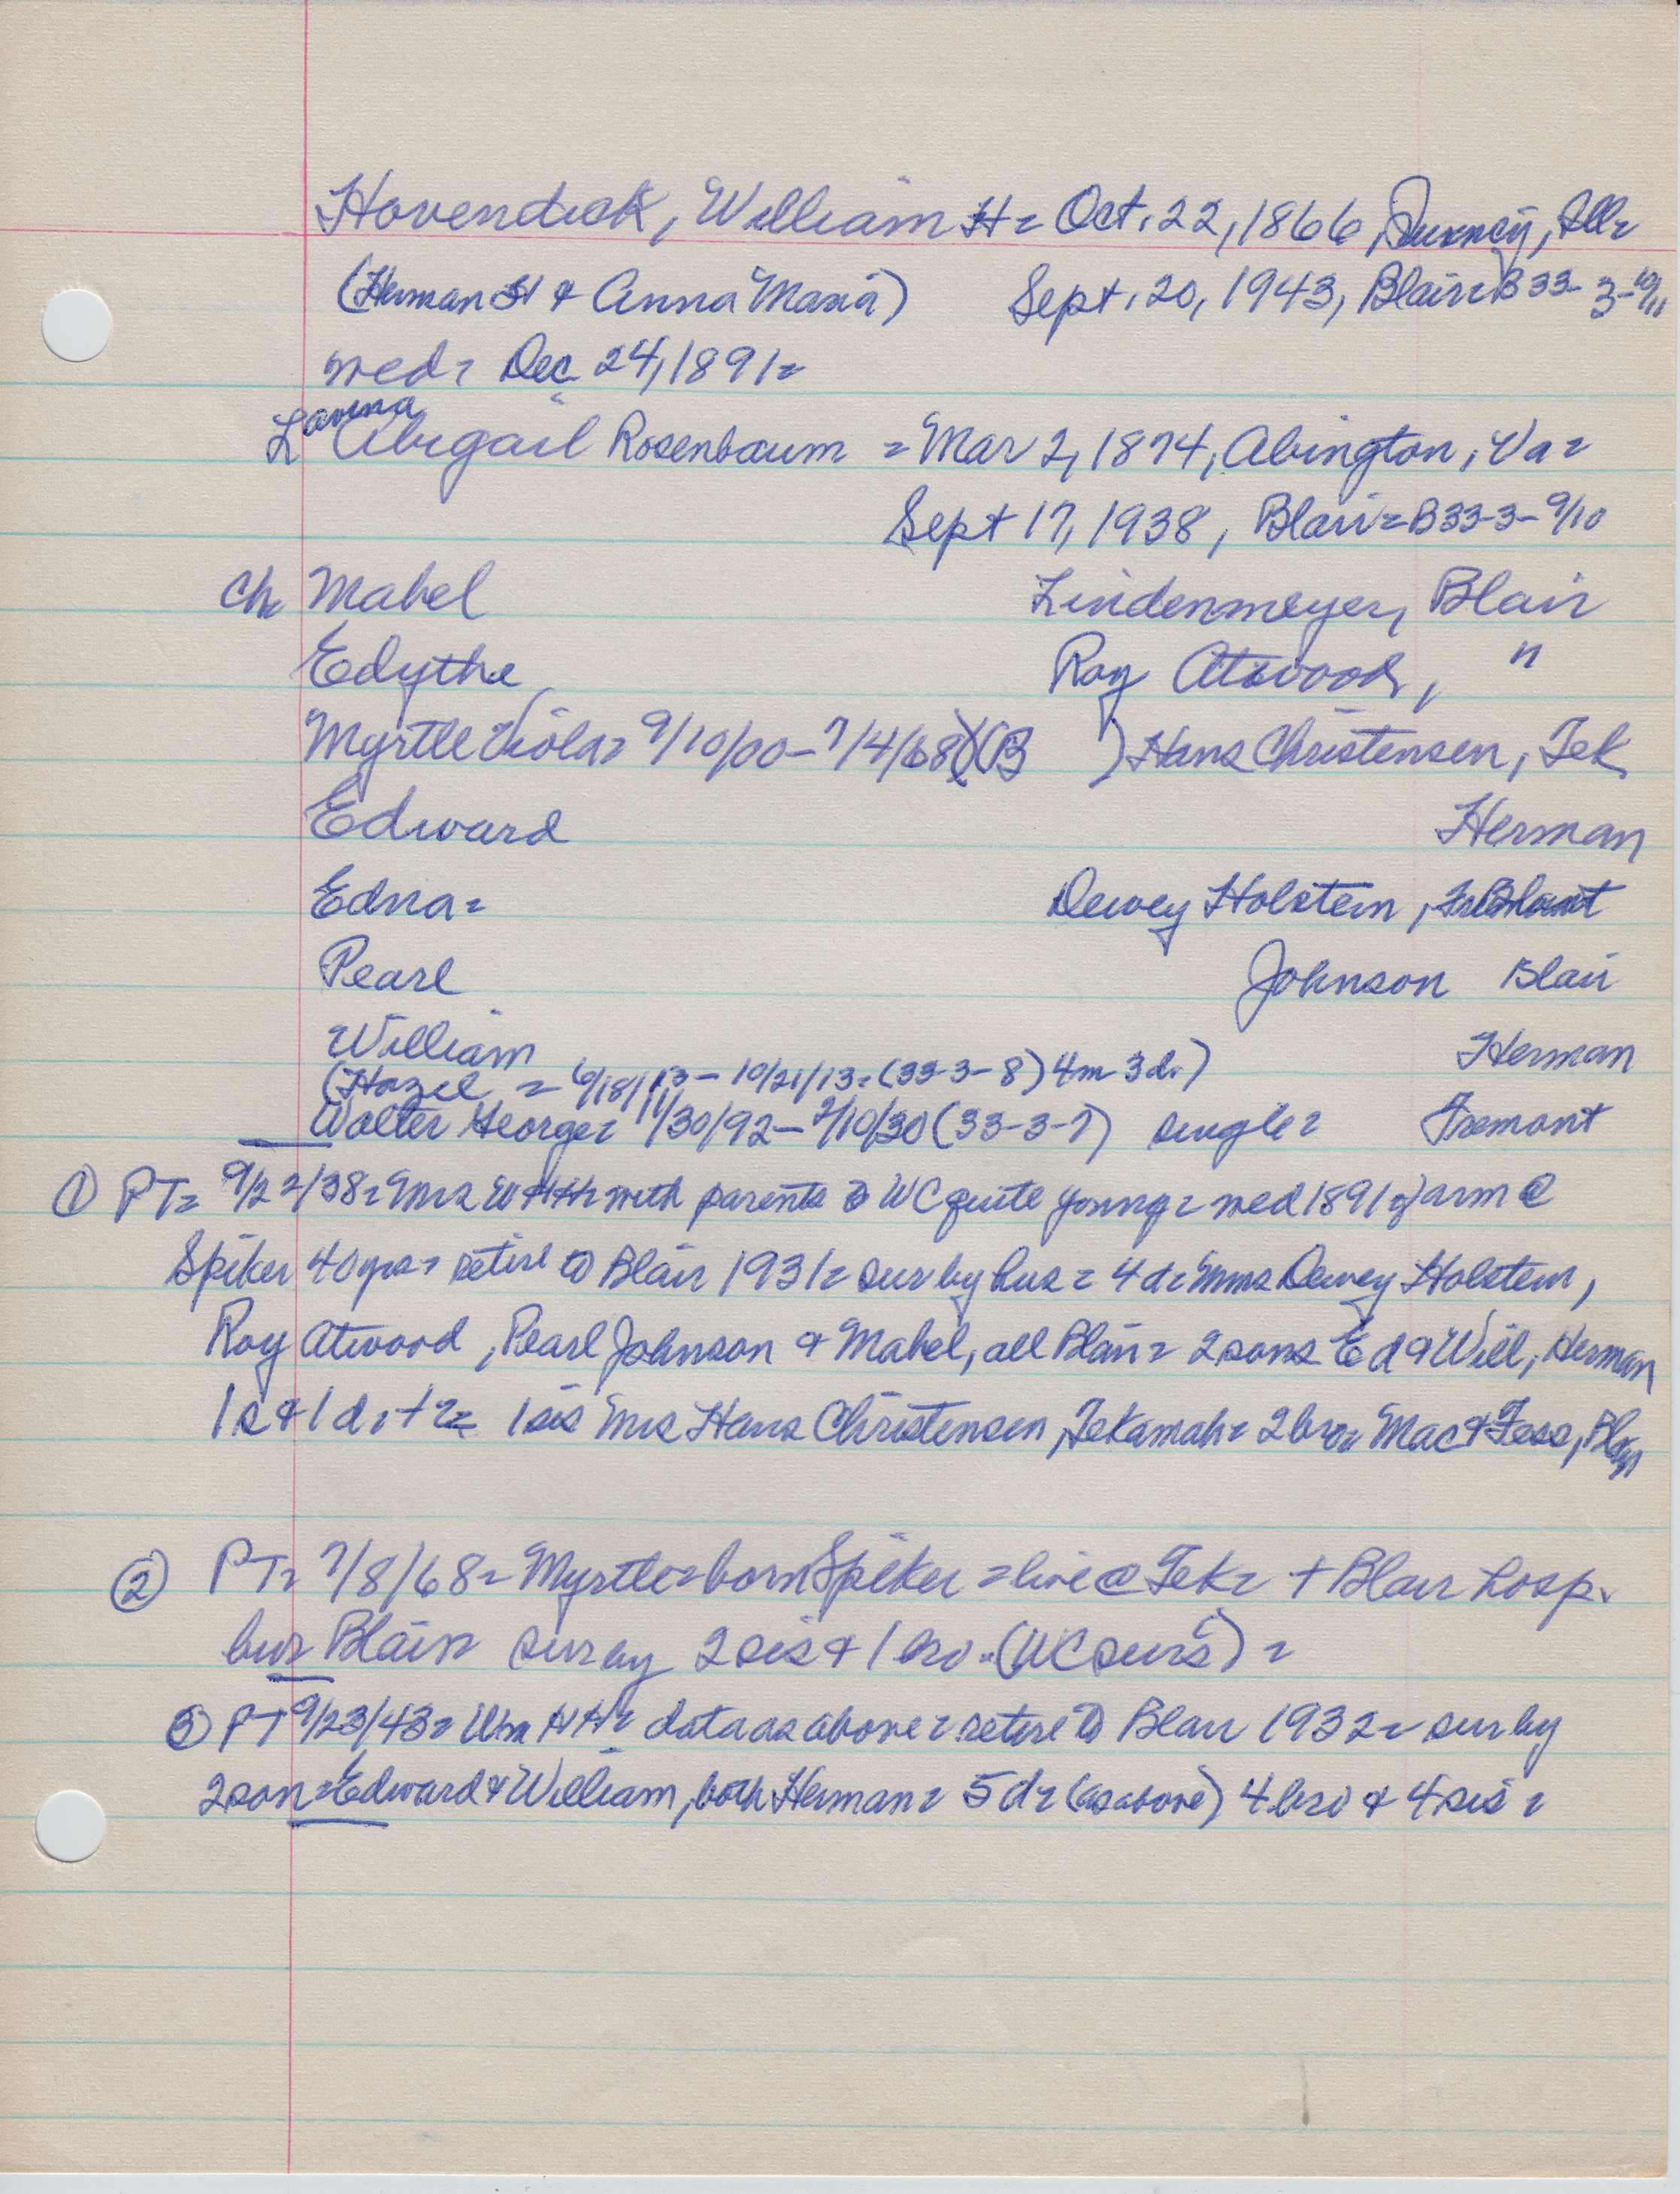 Hovendick, William H = Oct. 22, 1866, Quincy, Ill =
(Herman H & Anna Maria) Sept. 20, 1943, Blair = B 33-3-10/11
med = Dec 24, 1891 =
Lavina Abigail Rosenbaum = Mar 2, 1874, Abington, Va =
Sept 17, 1938, Blair = B33-3-9/10
Ch Mabel Lindenmeyer, Blair
Edythe Roy Atwood, "
Myrtle Viola = 9/10/00 - 7/4/68) (B ) Hans Christensen, Tek
Edward Herman
Edna = Dewey Holstein,
Pearl Johnson Blair
William Herman
(Hazel = 6/18/13 - 10/21/13 = (33-3-8) 4m 3d.)
Walter George = 11/30/92 - 2/10/30 (33-3-7) single = Fremont
① PT = 9/22/38 = Mrs W H H = with parents to WC quite young = med 1891 = farm @
Spiker 40 yrs = retire to Blair 1931 = sur by hus = 4 d = Mms Dewey Holstein,
Roy Atwood, Pearl Johnson & Mabel, all Blair = 2 sons Ed & Will, Herman
1 s & 1 d. + = 1 sis Mrs Hans Christensen, Tekamah = 2 bro = Mac & Tess, Blair
② PT = 7/8/68 = Myrtle = born Spiker = live @ Tek = + Blair hosp.
bur Blair = sur by 2 sis & 1 bro. (WC surs) =
③ PT 9/23/43 = Wm H H = data as above = retire to Blair 1932 = sur by
2 son = Edward & William, both Herman = 5 d = (as above) 4 bro & 4 sis =